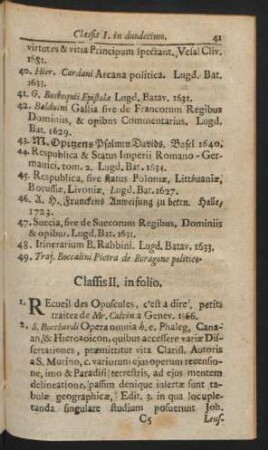 Classis I. in duodecimo. 41
virtutes & vitia Principum spectant. Vesal Cliv.
1681.
40. Hier. Cardani Arcana politica. Lugd. Bat.
1633.
41. G. Busbequii Epistolæ Lugd. Batav. 1631.
42. Balduini Gallia sive de Francorum Regibus
Dominiis, & opibus Commentarius. Lugd.
Bat. 1629.
43. M. Opitzens Psalmen Davids. Basel 1640.
44. Respublica & Status Imperii Romano-Ger-
manici. tom. 2. Lugd. Bat. 1634.
45. Respublica, sive status Poloniæ, Litthuaniæ,
Borussiæ, Livoniæ, Lugd. Bat. 1627.
46. A. H. Franckens Anweisung zu beten. Halle,
1723.
47. Suecia, sive de Suecorum Regibus, Dominiis
& opibus. Lugd. Bat. 1631.
48. Itinerarium B. Rabbini. Lugd. Batav. 1633.
49. Traj. Boccalini Pietra de Paragone politico.
Classis II. in folio.
1. Recueil des Opuscules, c'est a dire, petits
traitez de Mr. Calvin a Genev. 1566.
2. S. Bochardi Opera omnia h. e. Phaleg, Cana-
an, & Hierozoicon, quibus accessere variæ Dis-
sertationes, præmittitur vita Clariss. Autoris
a S. Mutino, c. variorum ejus operum recensio-
ne, imo & Paradisi terrestris, ad ejus mentem
delineatione, passim denique insertæ sunt tabu-
læ geographicæ, Edit. 3. in qua locuple-
tanda singulare studium posuerunt Joh.
C5 Leus-